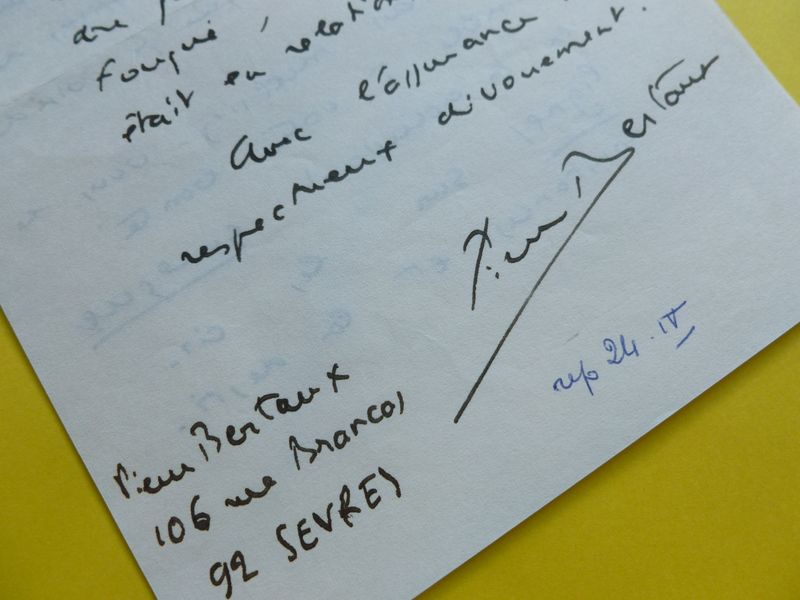 dre
Fouqué,
était en relation
Avec l'assurance
respectueux dévouement.
Pierre Bertaux
rep 24. IV
Pierre Bertaux
106 rue Brancas
92 SEVRES